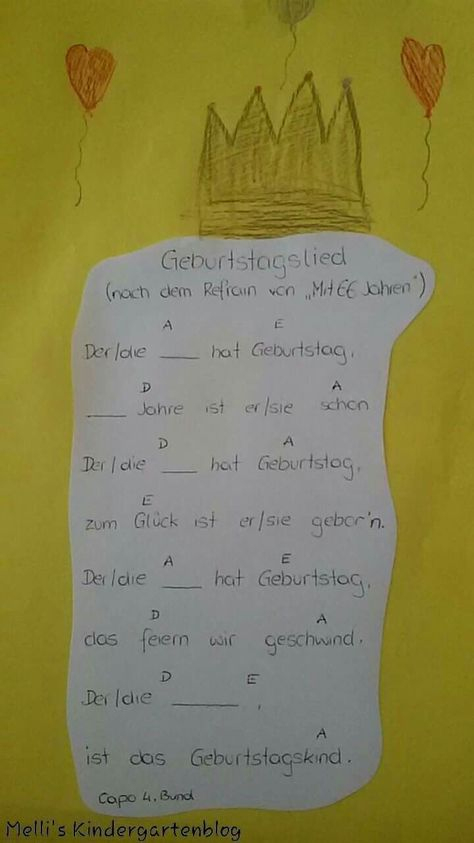 Geburtstagslied
(nach dem Refrain von „Mit 66 Jahren")
A E
Der/die ___ hat Geburtstag,
D A
___ Jahre ist er/sie schon
D A
Der/die ___ hat Geburtstag,
E
zum Glück ist er/sie gebor'n.
A E
Der/die ___ hat Geburtstag,
D A
das feiern wir geschwind.
D E
Der/die _____,
A
ist das Geburtstagskind.
Capo 4. Bund
Melli's Kindergartenblog